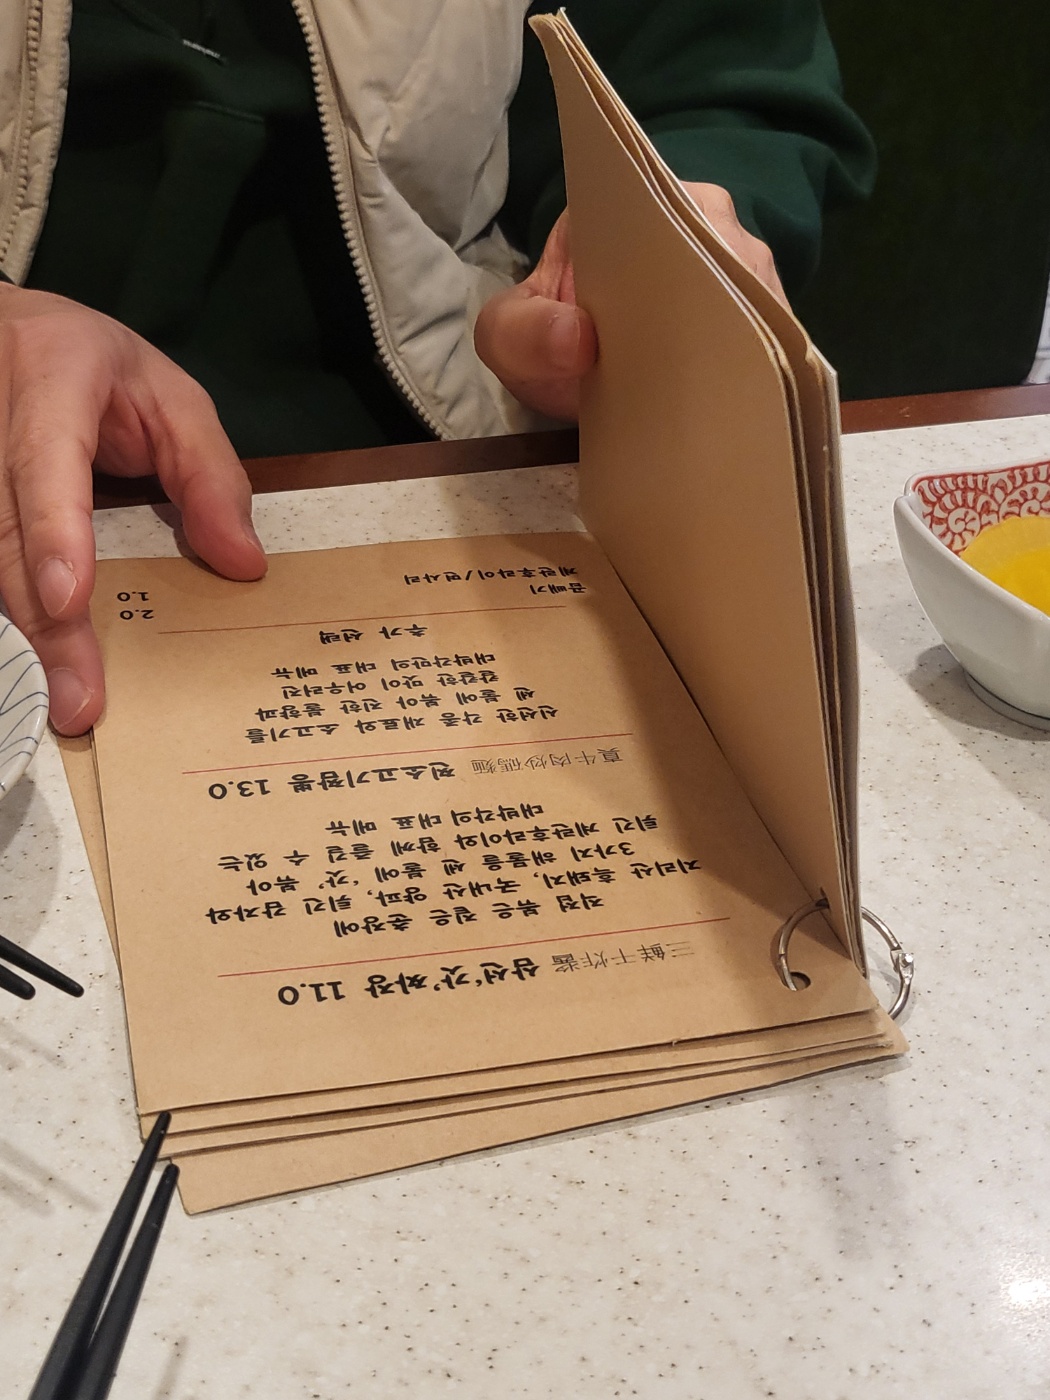 三鮮干炸醬 삼선‘갓’짜장 11.0
직접 볶은 짙은 춘장에
지리산 흑돼지, 국내산 양파, 튀긴 감자와
3가지 해물을 센 불에 ‘갓’ 볶아
튀긴 계란후라이와 함께 즐길 수 있는
대박각의 대표 메뉴
真牛肉炒碼麵 찐소고기짬뽕 13.0
신선한 각종 재료와 소고기를
센 불에 볶아 진한 불향과
칼칼한 맛이 어우러진
대박각만의 대표 메뉴
추가 선택
곱빼기 2.0
계란후라이/면사리 1.0